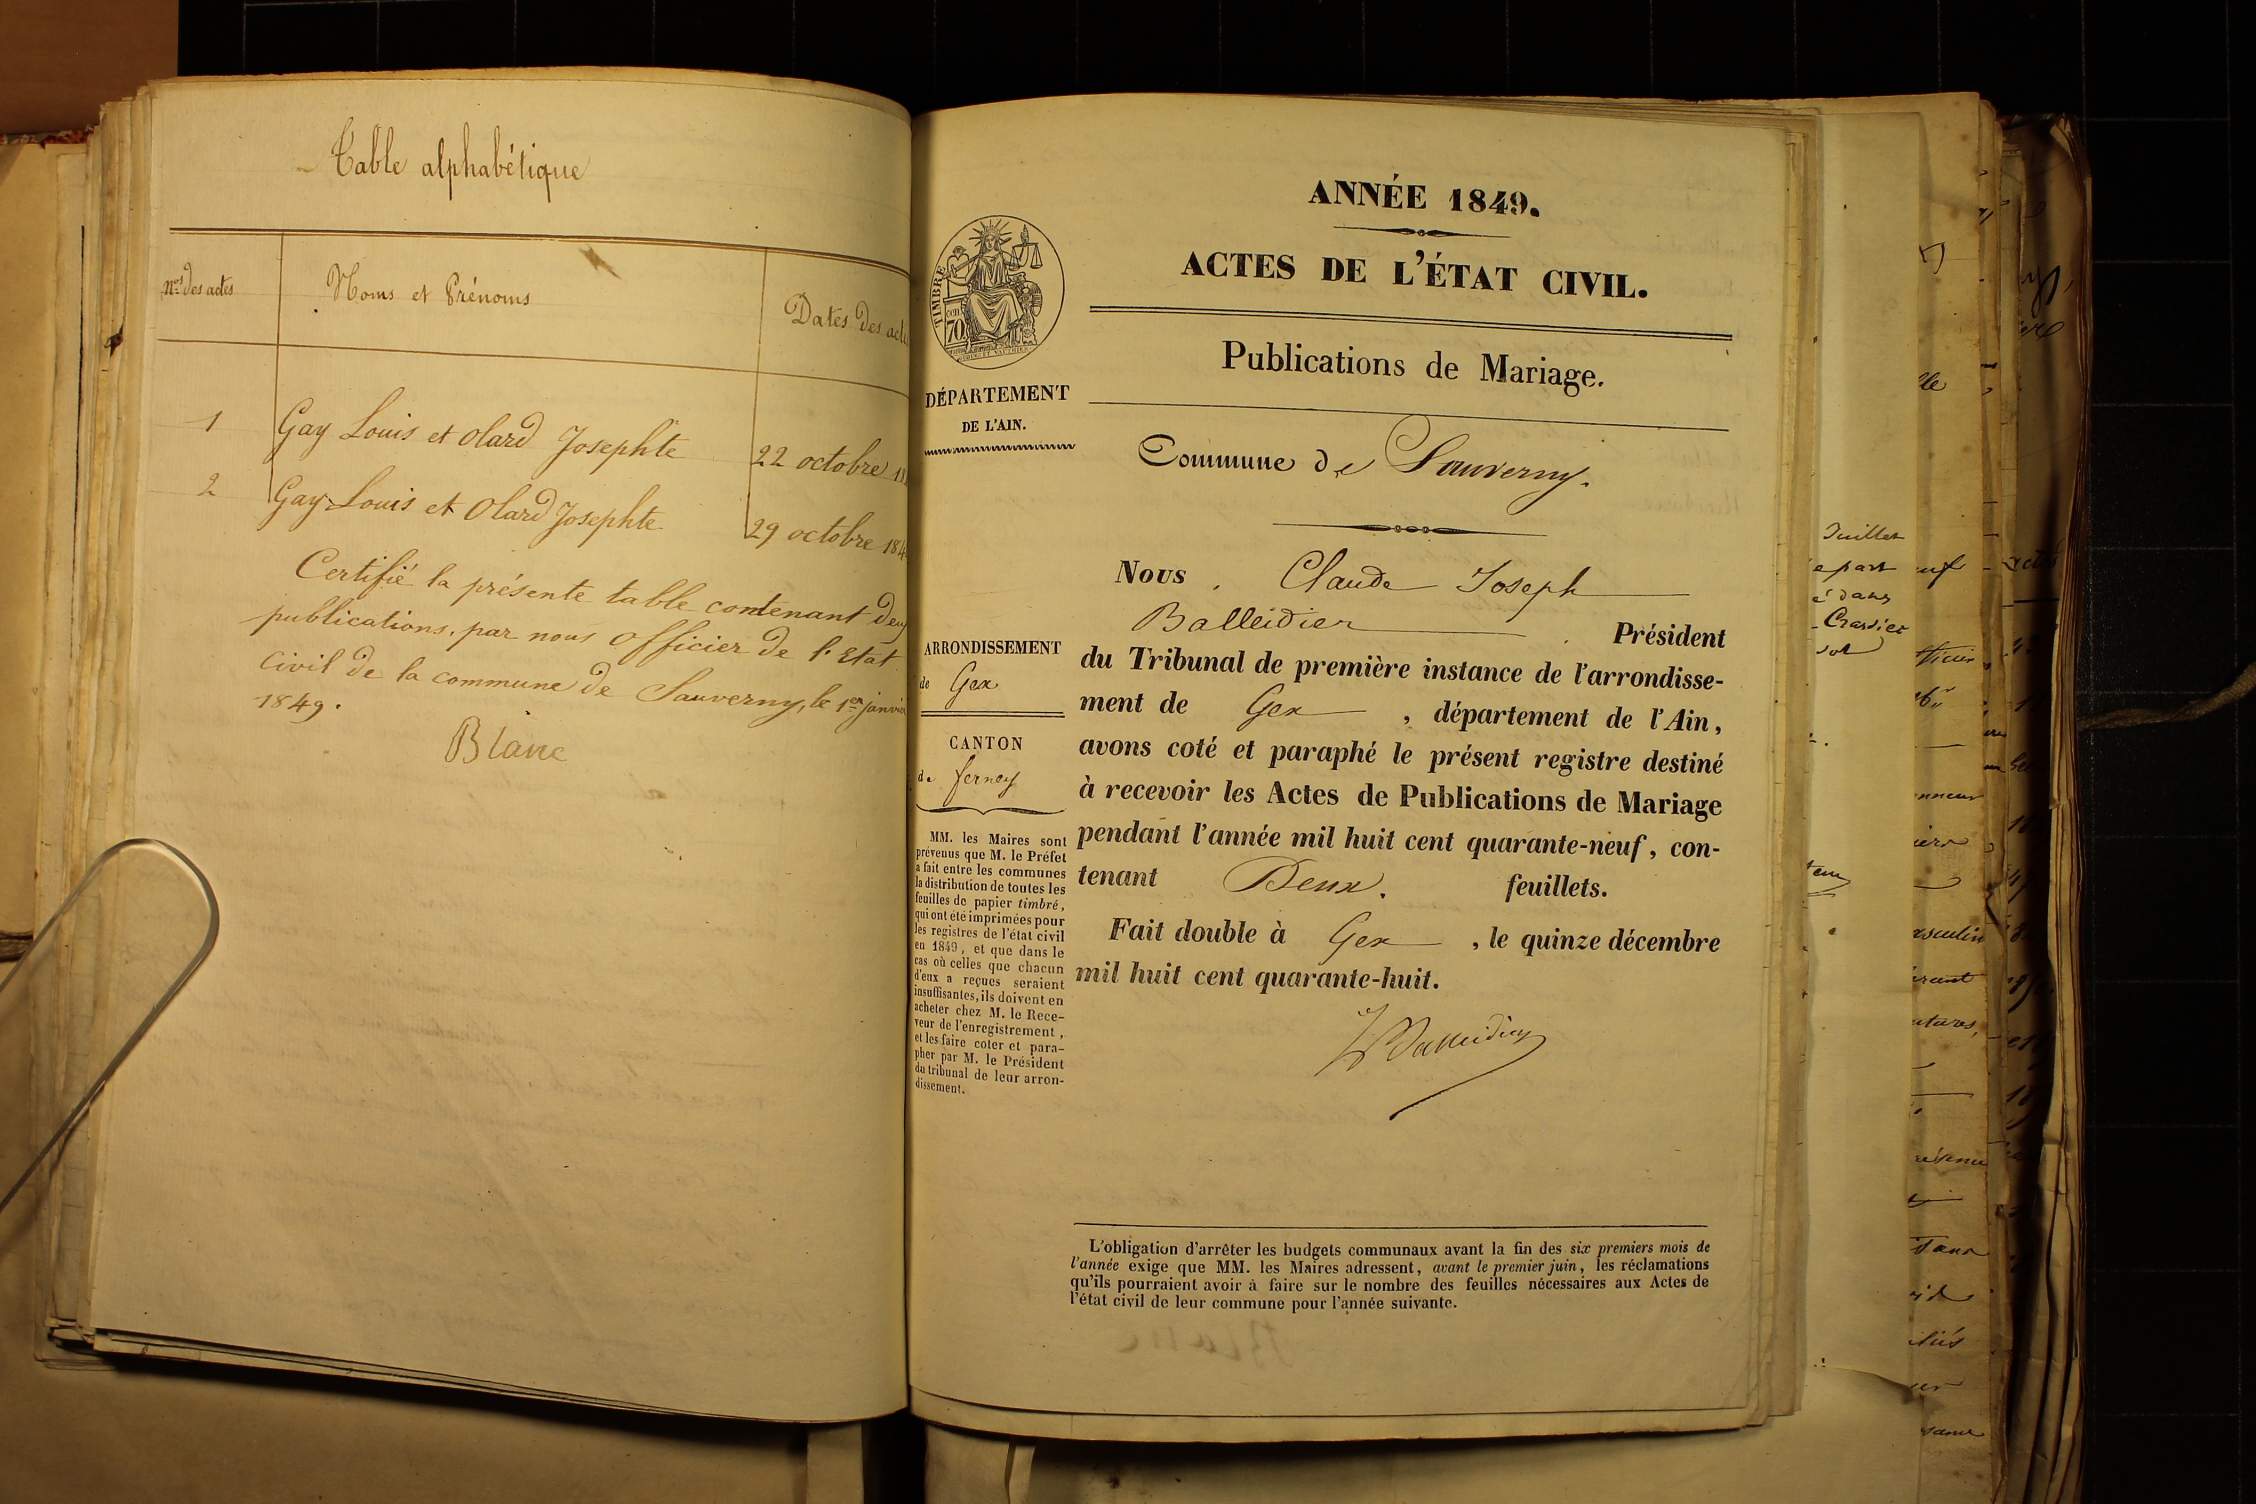 Table alphabétique
Nos des actes
Noms et Prénoms
Dates des act
1 Gay Louis et Olard Josephte 22 octobre 18
2 Gay Louis et Olard Josephte 29 octobre 184
Certifié la présente table contenant deux
publications, par nous officier de l'Etat
civil de la commune de Sauverny, le 1er janvier
1849.
Blanc
ANNÉE 1849.
ACTES DE L'ÉTAT CIVIL.
TIMBRE
70 cen
Publications de Mariage.
DÉPARTEMENT
DE L'AIN.
Commune de Sauverny.
Nous, Claude Joseph
Balleidier Président
du Tribunal de première instance de l'arrondisse-
ment de Gex, département de l'Ain,
avons coté et paraphé le présent registre destiné
à recevoir les Actes de Publications de Mariage
pendant l'année mil huit cent quarante-neuf, con-
tenant Deux. feuillets.
Fait double à Gex, le quinze décembre
mil huit cent quarante-huit.
Balleidier
ARRONDISSEMENT
de Gex
CANTON
de ferney
MM. les Maires sont
prévenus que M. le Préfet
a fait entre les communes
la distribution de toutes les
feuilles de papier timbré,
qui ont été imprimées pour
les registres de l'état civil
en 1849, et que dans le
cas où celles que chacun
d'eux a reçues seraient
insuffisantes, ils doivent en
acheter chez M. le Rece-
veur de l'enregistrement,
et les faire coter et para-
pher par M. le Président
du tribunal de leur arron-
dissement.
L'obligation d'arrêter les budgets communaux avant la fin des six premiers mois de
l'année exige que MM. les Maires adressent, avant le premier juin, les réclamations
qu'ils pourraient avoir à faire sur le nombre des feuilles nécessaires aux Actes de
l'état civil de leur commune pour l'année suivante.
Juillet